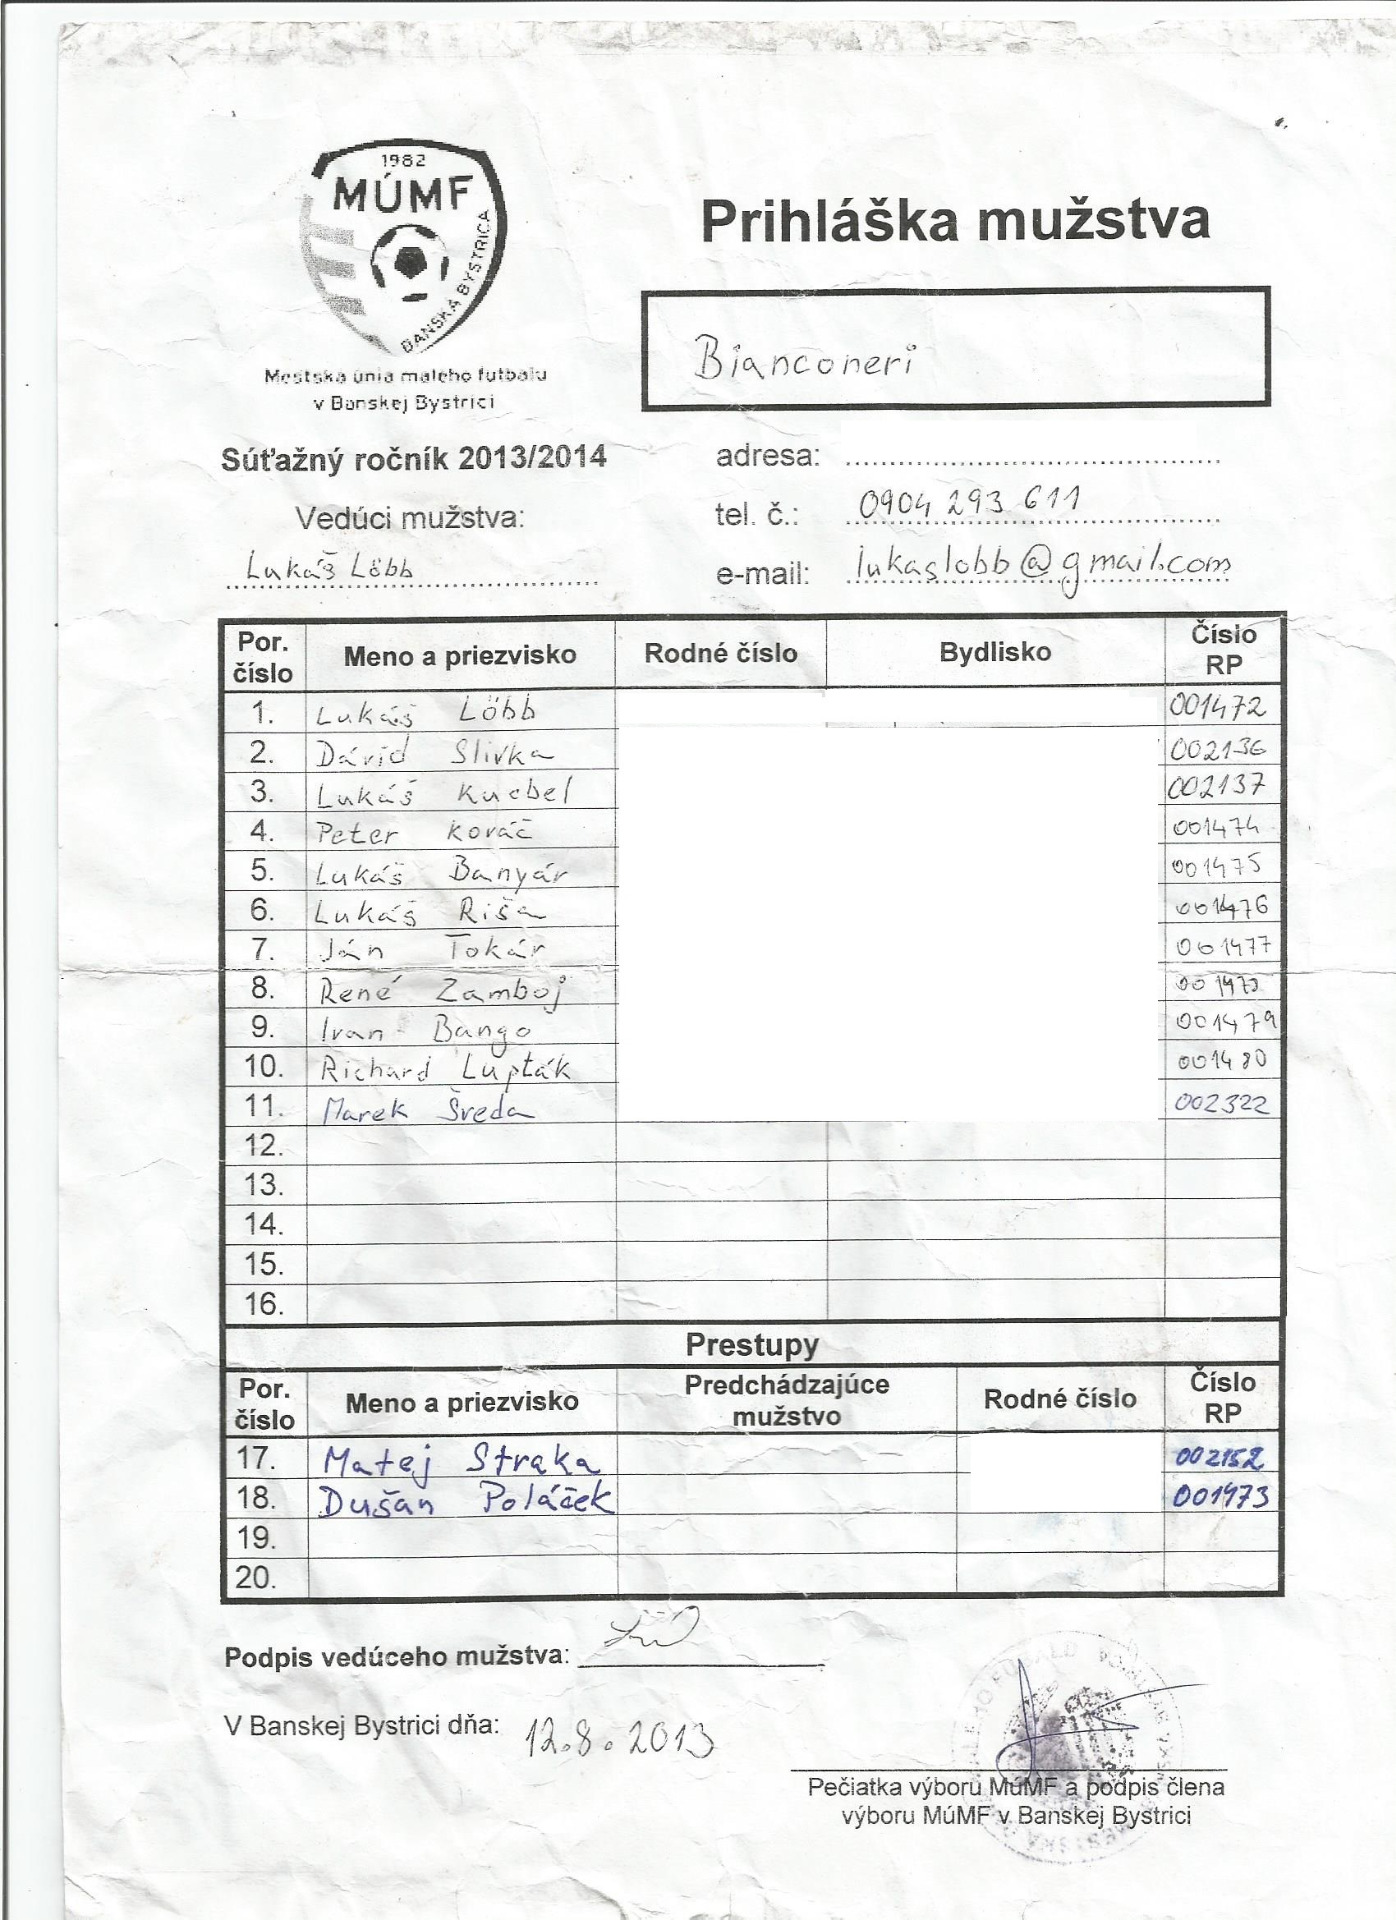 1982
MÚMF
BANSKÁ BYSTRICA
Mestska únia malého futbalu
v Banskej Bystrici
Prihláška mužstva
Bianconeri
Súťažný ročník 2013/2014
Vedúci mužstva:
Lukáš Löbb
adresa:
tel. č.: 0904 293 611
e-mail: lukaslobb@gmail.com
Por. číslo Meno a priezvisko Rodné číslo Bydlisko Číslo RP
1. Lukáš Löbb 001472
2. Dávid Slivka 002136
3. Lukáš Kuebel 002137
4. Peter Kováč 001474
5. Lukáš Banyár 001475
6. Lukáš Riša 001476
7. Ján Tokár 001477
8. René Zamboj
9. Ivan Bango 001479
10. Richard Lupták 001480
11. Marek Šveda 002322
12.
13.
14.
15.
16.
Prestupy
Por. číslo Meno a priezvisko Predchádzajúce mužstvo Rodné číslo Číslo RP
17. Matej Straka 002152
18. Dušan Poláček 001973
19.
20.
Podpis vedúceho mužstva:
V Banskej Bystrici dňa: 12.8.2013
Pečiatka výboru MúMF a podpis člena
výboru MúMF v Banskej Bystrici